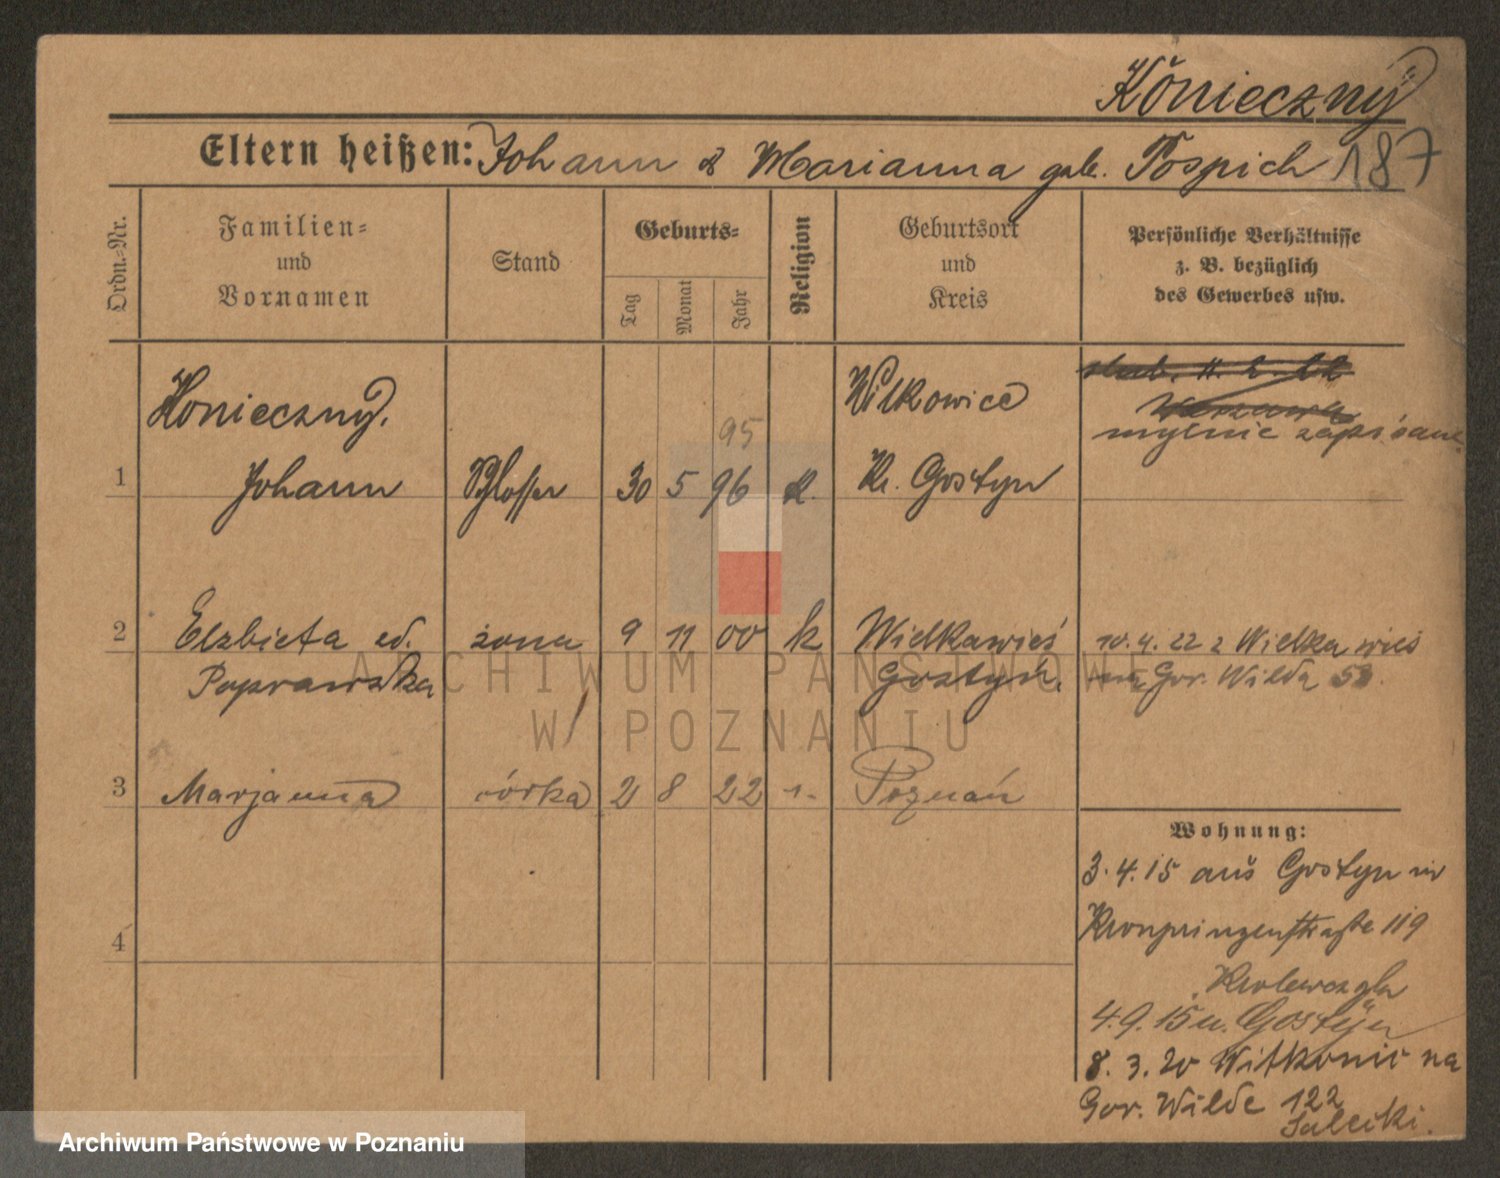 Konieczny
Eltern heißen: Johann & Marianna geb. Pospich 187
Ordn.=Nr.
Familien=
und
Vornamen
Stand
Geburts=
Tag
Monat
Jahr
Religion
Geburtsort
und
Kreis
Persönliche Verhältnisse
z. B. bezüglich
des Gewerbes usw.
Konieczny.
Witkowice
Warszawa
mylnie zapisane
95
1 Johann Schlosser 30 5 96 K. Kr. Gostyn
2 Elzbieta ed. żona 9 11 00 k Wielkawieś 10.4.22 z Wielka wieś
Poprawska Gostyń. na Gor. Wilda 53.
3 Marjanna córka 2 8 22 Poznań
Wohnung:
3.4.15 aus Gostyn in
Kronprinzenstraße 119
4
4.9.15 n. Gostyn
8.3.20 Witkowic na
Gor. Wilde 122
ARCHIWUM PAŃSTWOWE
W POZNANIU
Archiwum Państwowe w Poznaniu